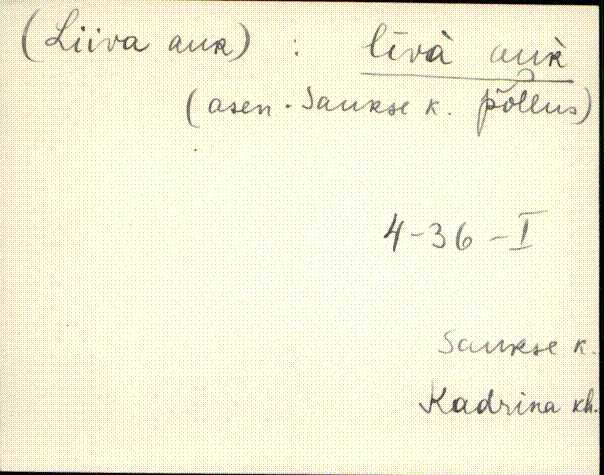 (Liiva auk) : līvà auk̀
(asen. Saukse k. põllus)
4-36-I
Saukse k.
Kadrina kh.